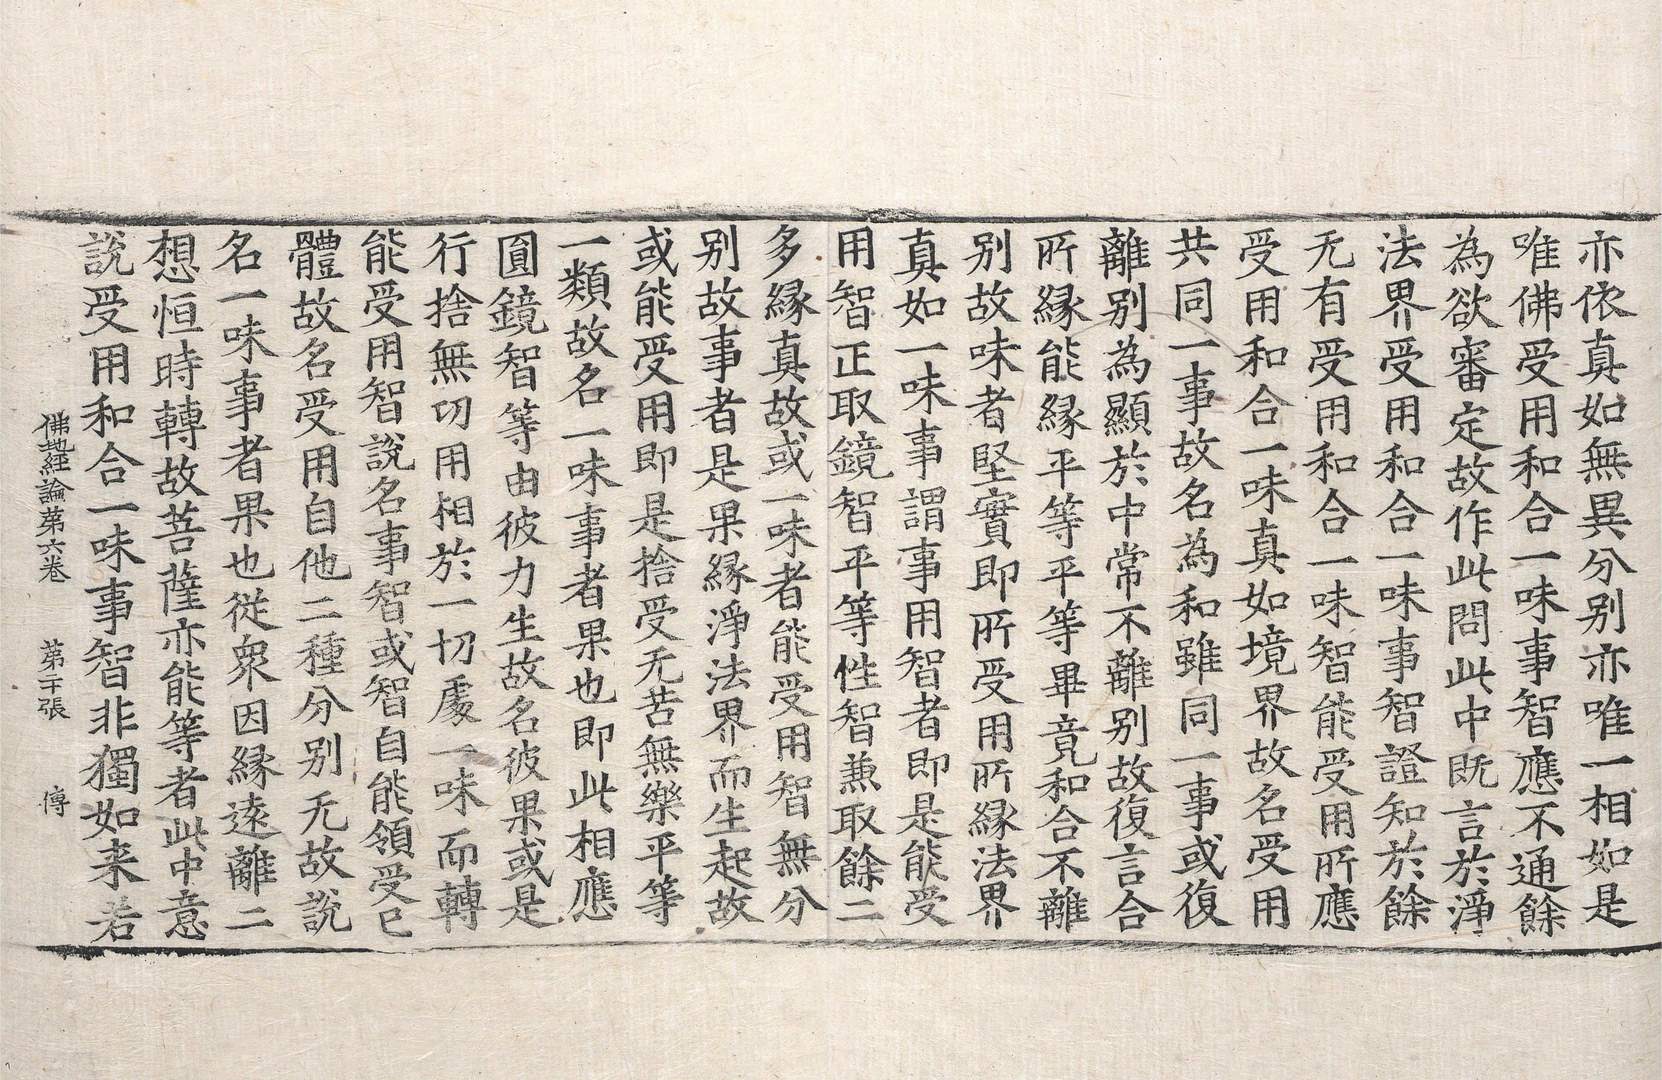 亦依真如無異分别亦唯一相如是
唯佛受用和合一味事智應不通餘
為欲審定故作此問此中既言於淨
法界受用和合一味事智證知於餘
无有受用和合一味智能受用所應
受用和合一味真如境界故名受用
共同一事故名為和雖同一事或復
離别為顯於中常不離别故復言合
所縁能縁平等平等畢竟和合不離
别故味者堅實即所受用所縁法界
真如一味事謂事用智者即是能受
用智正取鏡智平等性智兼取餘二
多縁真故或一味者能受用智無分
别故事者是果縁淨法界而生起故
或能受用即是捨受无苦無樂平等
一類故名一味事者果也即此相應
圓鏡智等由彼力生故名彼果或是
行捨無功用相於一切處一味而轉
能受用智説名事智或智自能領受已
體故名受用自他二種分别无故說
名一味事者果也從衆因縁遠離二
想恒時轉故菩薩亦能等者此中意
說受用和合一味事智非獨如来若
佛地經論第六卷 第二十張 傳